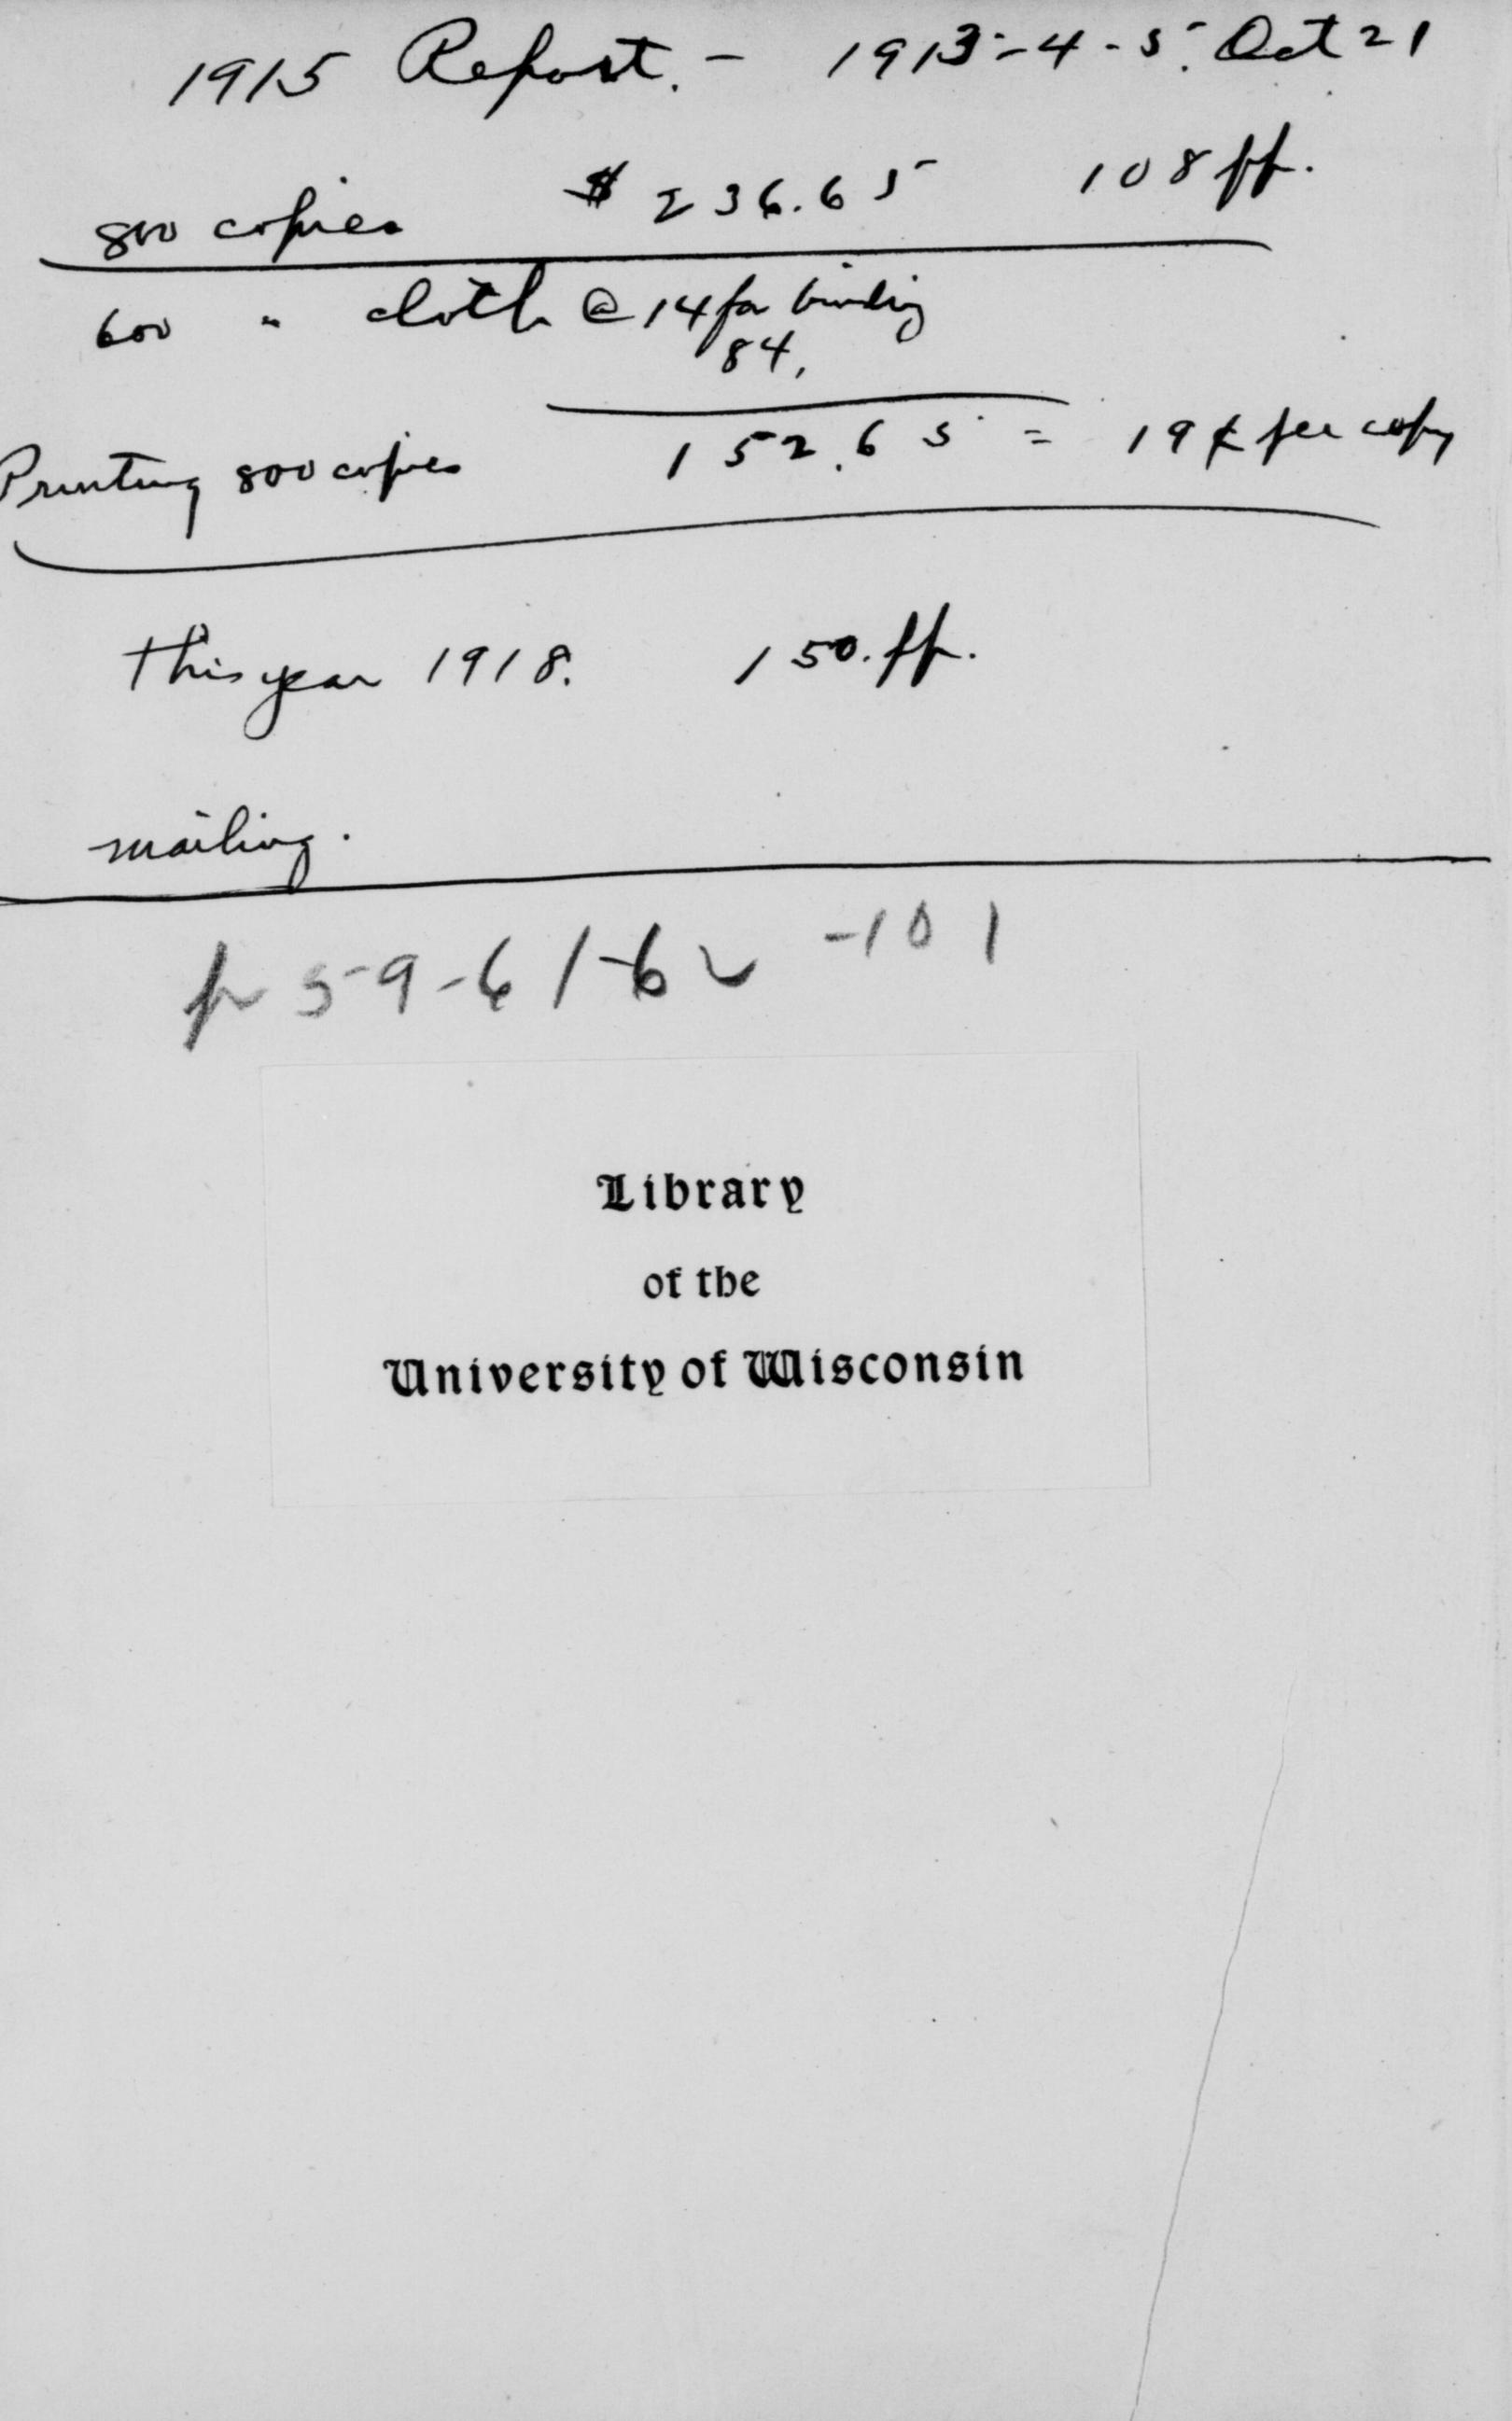 1915 Report. - 1913-4-5. Oct 21
800 copies $ 236.65 108 pp.
600 " cloth @ 14 for binding
84.
Printing 800 copies 152.65 = 19¢ per copy
This year 1918. 150. pp.
mailing.
p 59-61-62-101
Library
of the
University of Wisconsin